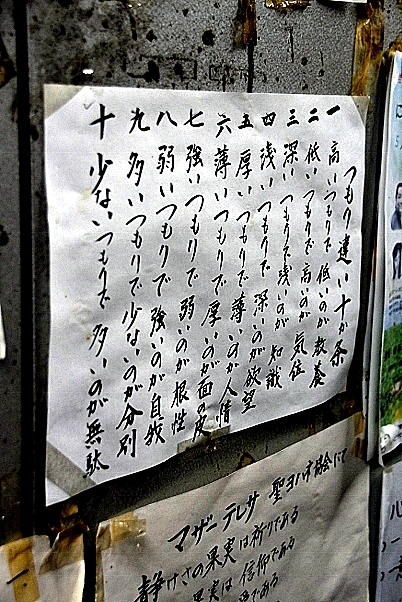 つもり違い十か条
一 高いつもりで低いのが教養
二 低いつもりで高いのが気位
三 深いつもりで浅いのが知識
四 浅いつもりで深いのが欲望
五 厚いつもりで薄いのが人情
六 薄いつもりで厚いのが面の皮
七 強いつもりで弱いのが根性
八 弱いつもりで強いのが自我
九 多いつもりで少ないのが分別
十 少ないつもりで多いのが無駄
マザーテレサ
静けさの果実は祈りである
果実は信仰である